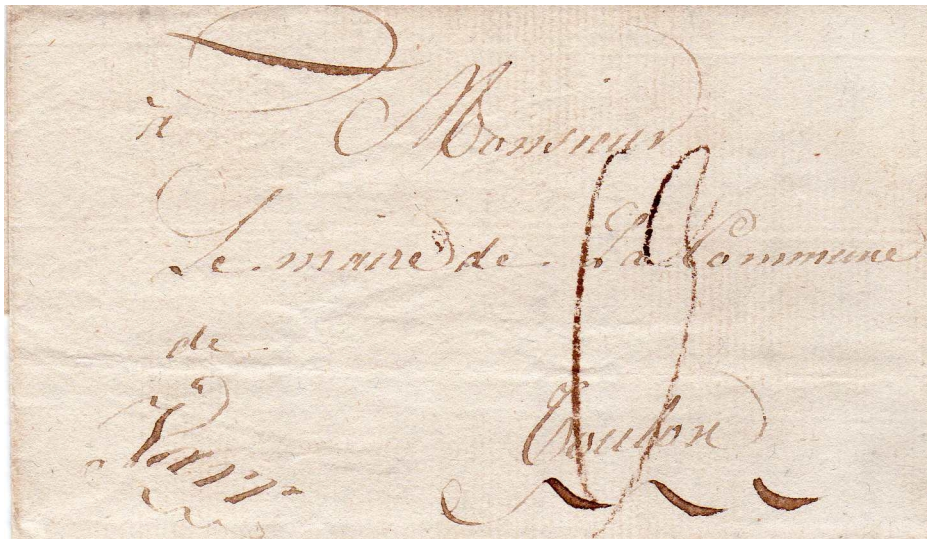 à Monsieur
Le maire de La Commune
de
Toulon
Var